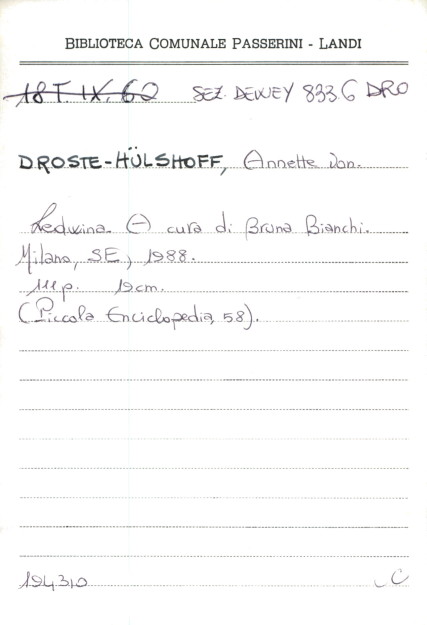 BIBLIOTECA COMUNALE PASSERINI - LANDI
18 T. IX. 62 SEZ. DEWEY 833.6 DRO
DROSTE-HÜLSHOFF, Annette von.
Ledwina. A cura di Bruna Bianchi.
Milano, SE, 1988.
111 p. 19 cm.
(Piccola Enciclopedia, 58).
194310